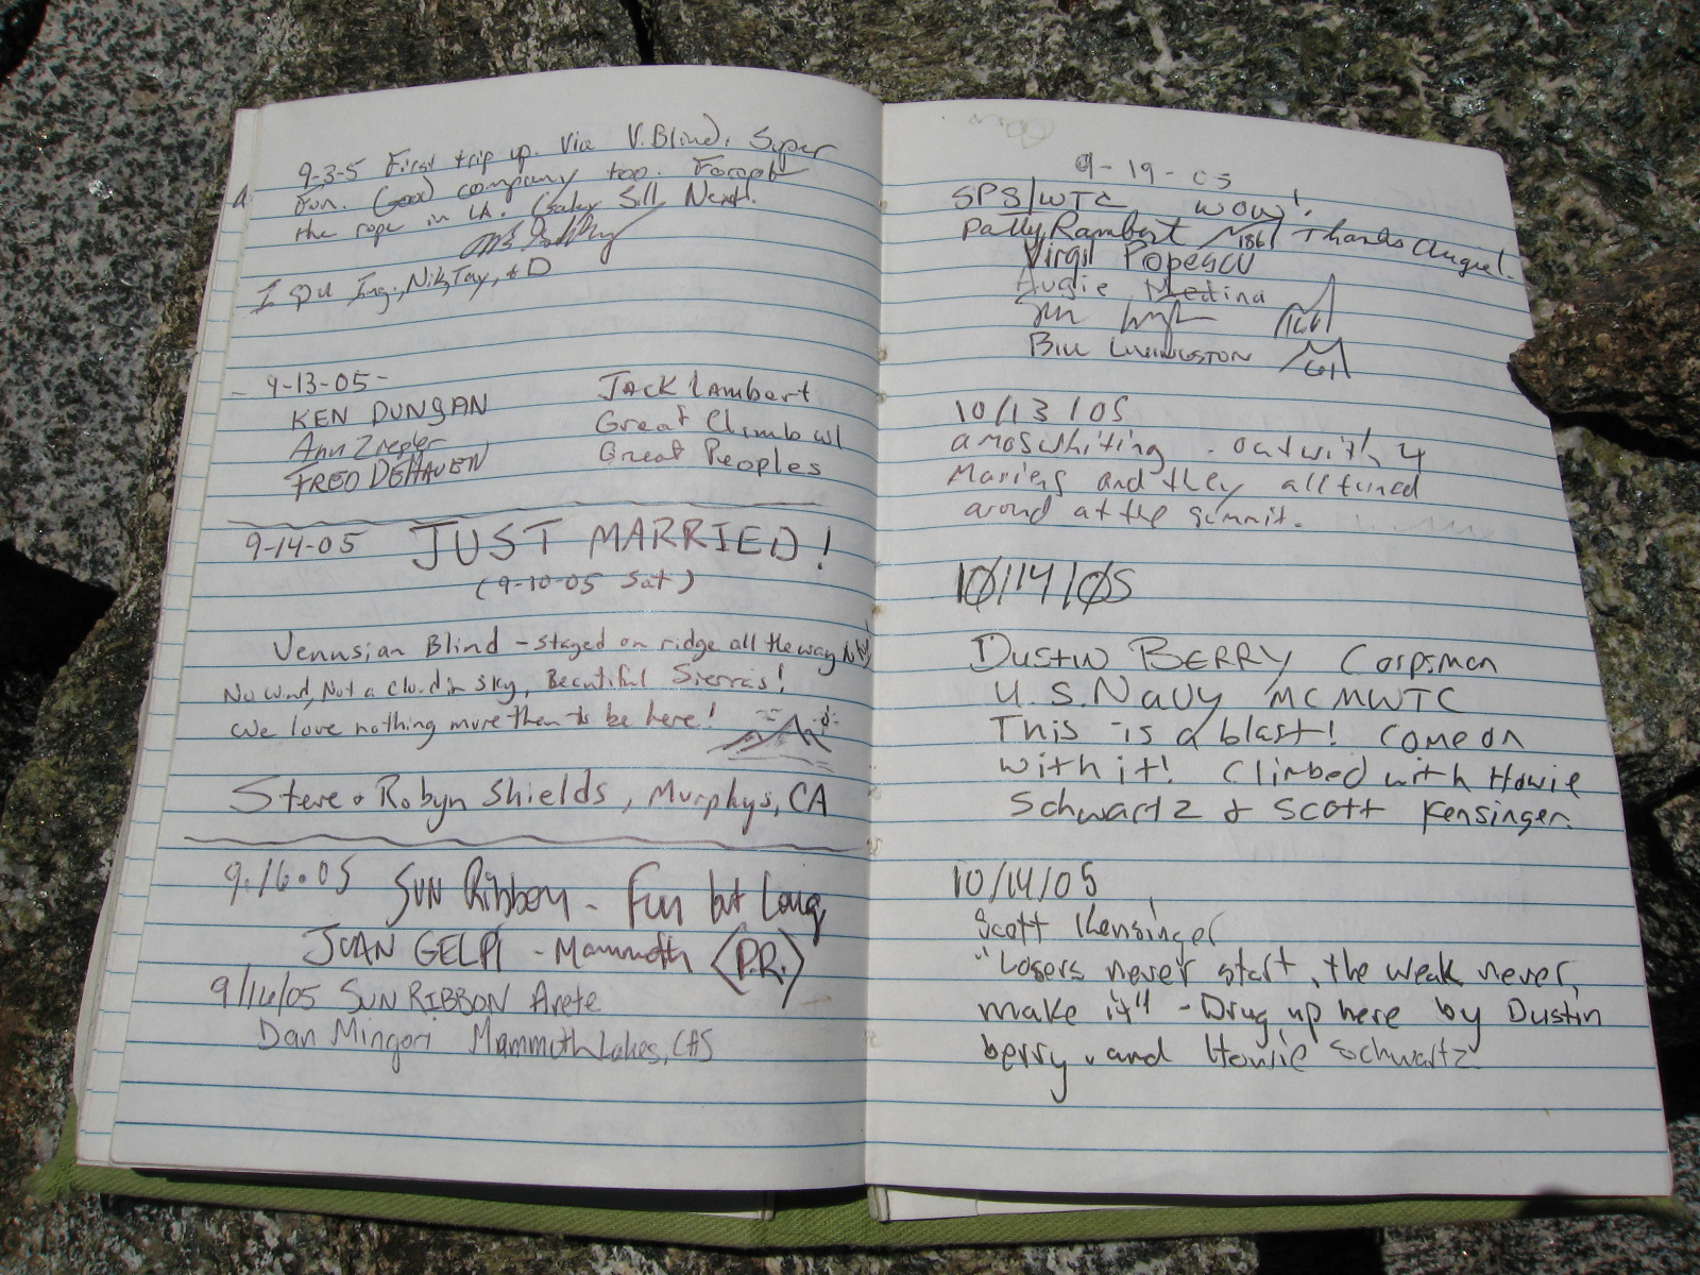 9-3-5 First trip up. Via V.Blind. Super
Fun. Good company too. Forgot
the rope in LA. Gaby Sill Next!
I ♡ U Ing., Nik, Tay, + D
9-13-05-
KEN DUNGAN
Ann Ziegler
FRED DEHAVEN
JACK LAMBERT
Great Climb w/
Great Peoples
9-14-05 JUST MARRIED!
(9-10-05 Sat)
Venusian Blind - stayed on ridge all the way
No wind, Not a cloud in sky, Beautiful Sierras!
We love nothing more then to be here!
Steve + Robyn Shields, Murphys, CA
9.16.05 SUN Ribbon - Fun but Long,
JUAN GELPI - Mammoth <P.R.>
9/16/05 SUN RIBBON Arete
Dan Mingori Mammoth Lakes, CA
9-19-05
SPS/WTC WOW!
Patty Rambert 186 Thanks Augie!
Virgil Popescu
Augie Medina
BILL LIVINGSTON
10/13/05
amos whiting - out with 4
Mariens and they all turned
arond at the summit.
10/14/05
DUSTIN BERRY Corpsman
U.S. NAVY MCMWTC
This is a blast! Come on
with it! Climbed with Howie
Schwartz & Scott Kensinger.
10/14/05
Scott Kensinger
"Losers never start, the weak never,
make it" - Drug up here by Dustin
berry, and Howie Schwartz